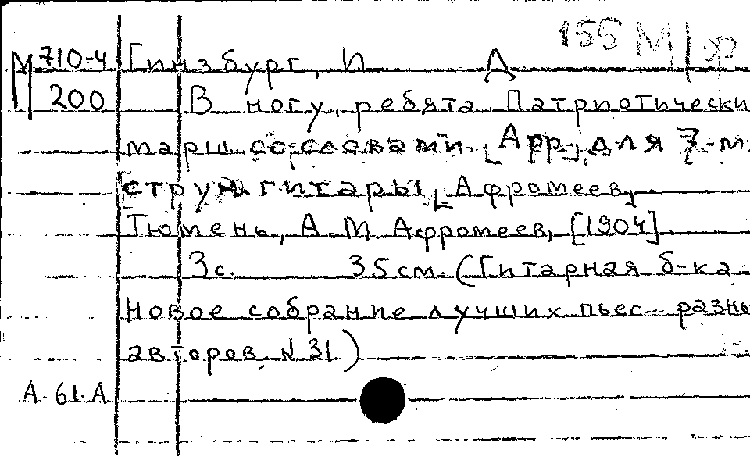 155 М
М 710-4 Гинзбург, И А
200 В ногу, ребята Патриотически
марш со словами. [Арр.] для 7-м
струн. гитары [Афромеев,
Тюмень, А М Афромеев, [1904]
3 с. 35 см. (Гитарная б-ка
Новое собрание лучших пьес разны
авторов, № 31)
А. 61. А